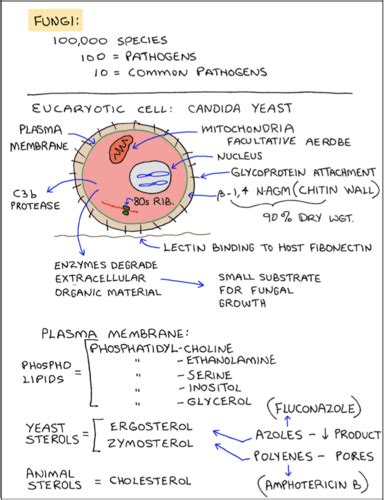 FUNGI:
100,000 SPECIES
100 = PATHOGENS
10 = COMMON PATHOGENS
EUCARYOTIC CELL: CANDIDA YEAST
PLASMA MEMBRANE
MITOCHONDRIA
FACULTATIVE AEROBE
NUCLEUS
GLYCOPROTEIN ATTACHMENT
β-1,4 NAGM (CHITIN WALL)
90% DRY WGT.
C3b PROTEASE
80s RIB.
LECTIN BINDING TO HOST FIBONECTIN
ENZYMES DEGRADE
EXTRACELLULAR
ORGANIC MATERIAL
SMALL SUBSTRATE
FOR FUNGAL
GROWTH
PLASMA MEMBRANE:
PHOSPHO LIPIDS =
PHOSPHATIDYL-CHOLINE
" - ETHANOLAMINE
" - SERINE
" - INOSITOL
" - GLYCEROL
(FLUCONAZOLE)
YEAST STEROLS =
ERGOSTEROL
ZYMOSTEROL
AZOLES - ↓ PRODUCT
POLYENES - PORES
(AMPHOTERICIN B)
ANIMAL STEROLS = CHOLESTEROL